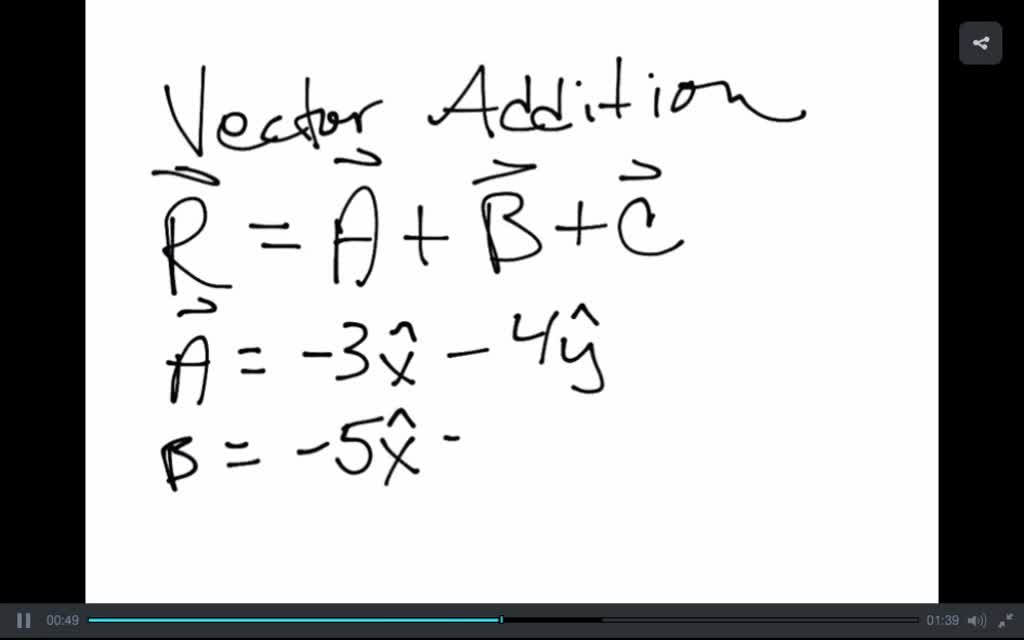 Vector Addition
R⃗ = A⃗ + B⃗ + C⃗
A⃗ = -3x̂ - 4ŷ
B = -5x̂ -
00:49 01:39